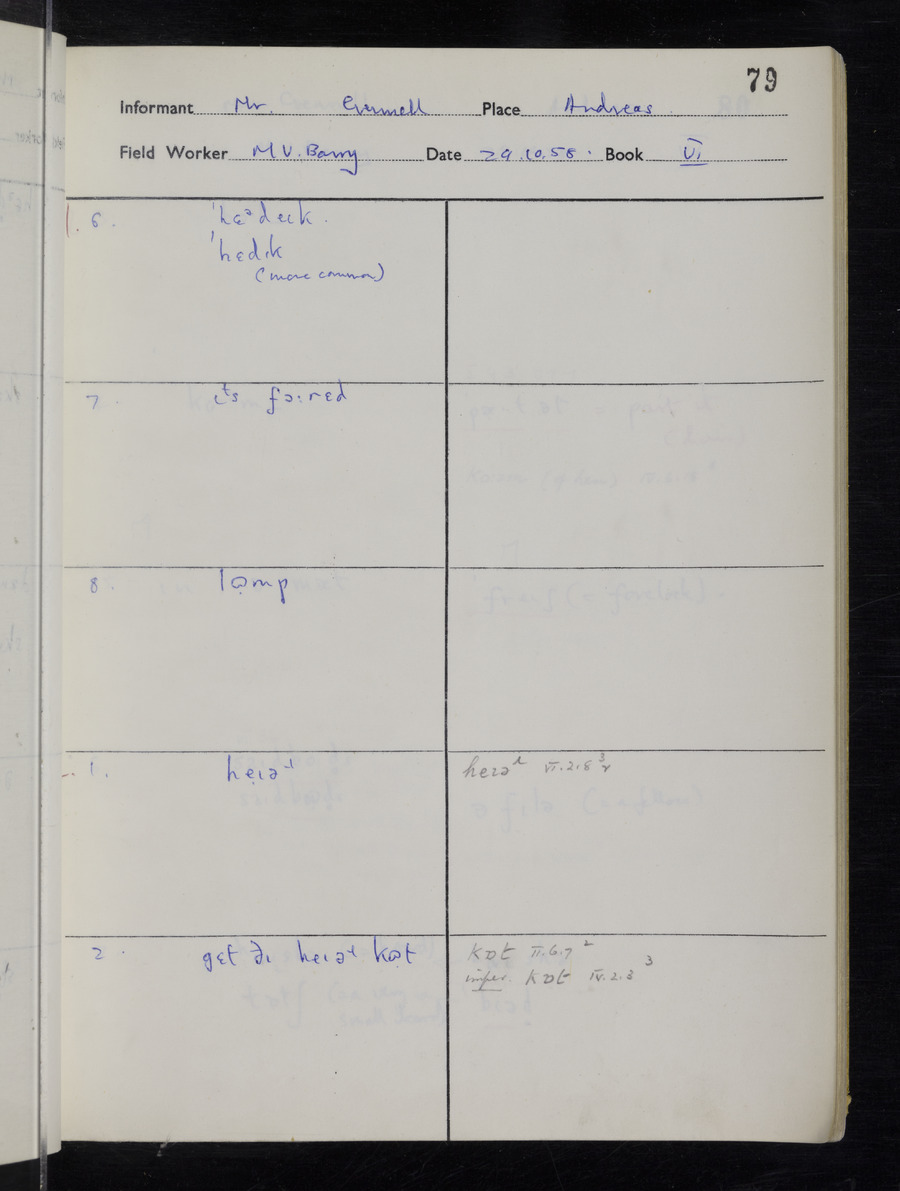 79
Informant Mr. Place Andreas.
Field Worker M V. Barry Date 29.10.58. Book VI
6. ˈhɛᵊdɛɪk.
ˈhɛdɪk
(more common)
7. ɪts fɔːrɛd
8. lamp
1. hɛ̣ɪəɹ
heɪəɹ VI.2.8³
2. gɛt ðɪ hɛ̣ɪəɹ kɒ̣t
kɒt II.6.7²
imper. kɒt IV.2.3³